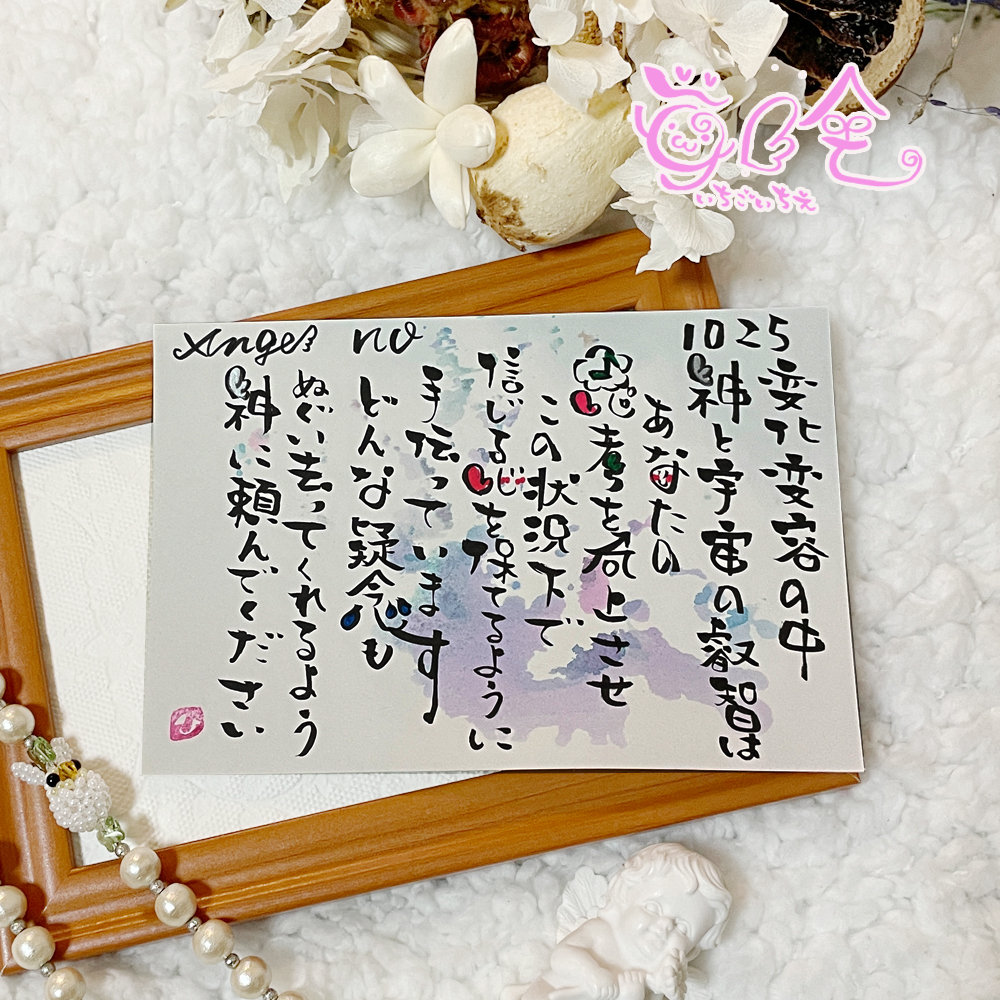 Angel no 1025
変化変容の中
神と宇宙の叡智は
あなたの
思考を向上させ
この状況下で
信じる心を保てるように
手伝っています
どんな疑念も
ぬぐい去ってくれるよう
神に頼んでください
いちごいちえ